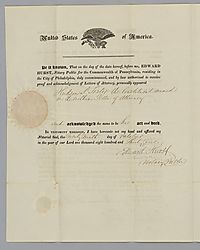 United States of America.
Be it known, That on the day of the date hereof, before me, EDWARD
HURST, Notary Public for the Commonwealth of Pennsylvania, residing in
the City of Philadelphia, duly commissioned, and by law authorized to receive
proof and acknowledgement of Letters of Attorney, personally appeared
the
Letter of Attorney
And acknowledged the same to be her act and deed.
IN TESTIMONY WHEREOF, I have hereunto set my hand and affixed my
Notarial Seal, the day of October
in the year of our Lord one thousand eight hundred and thirty
Edward Hurst
Notary Public